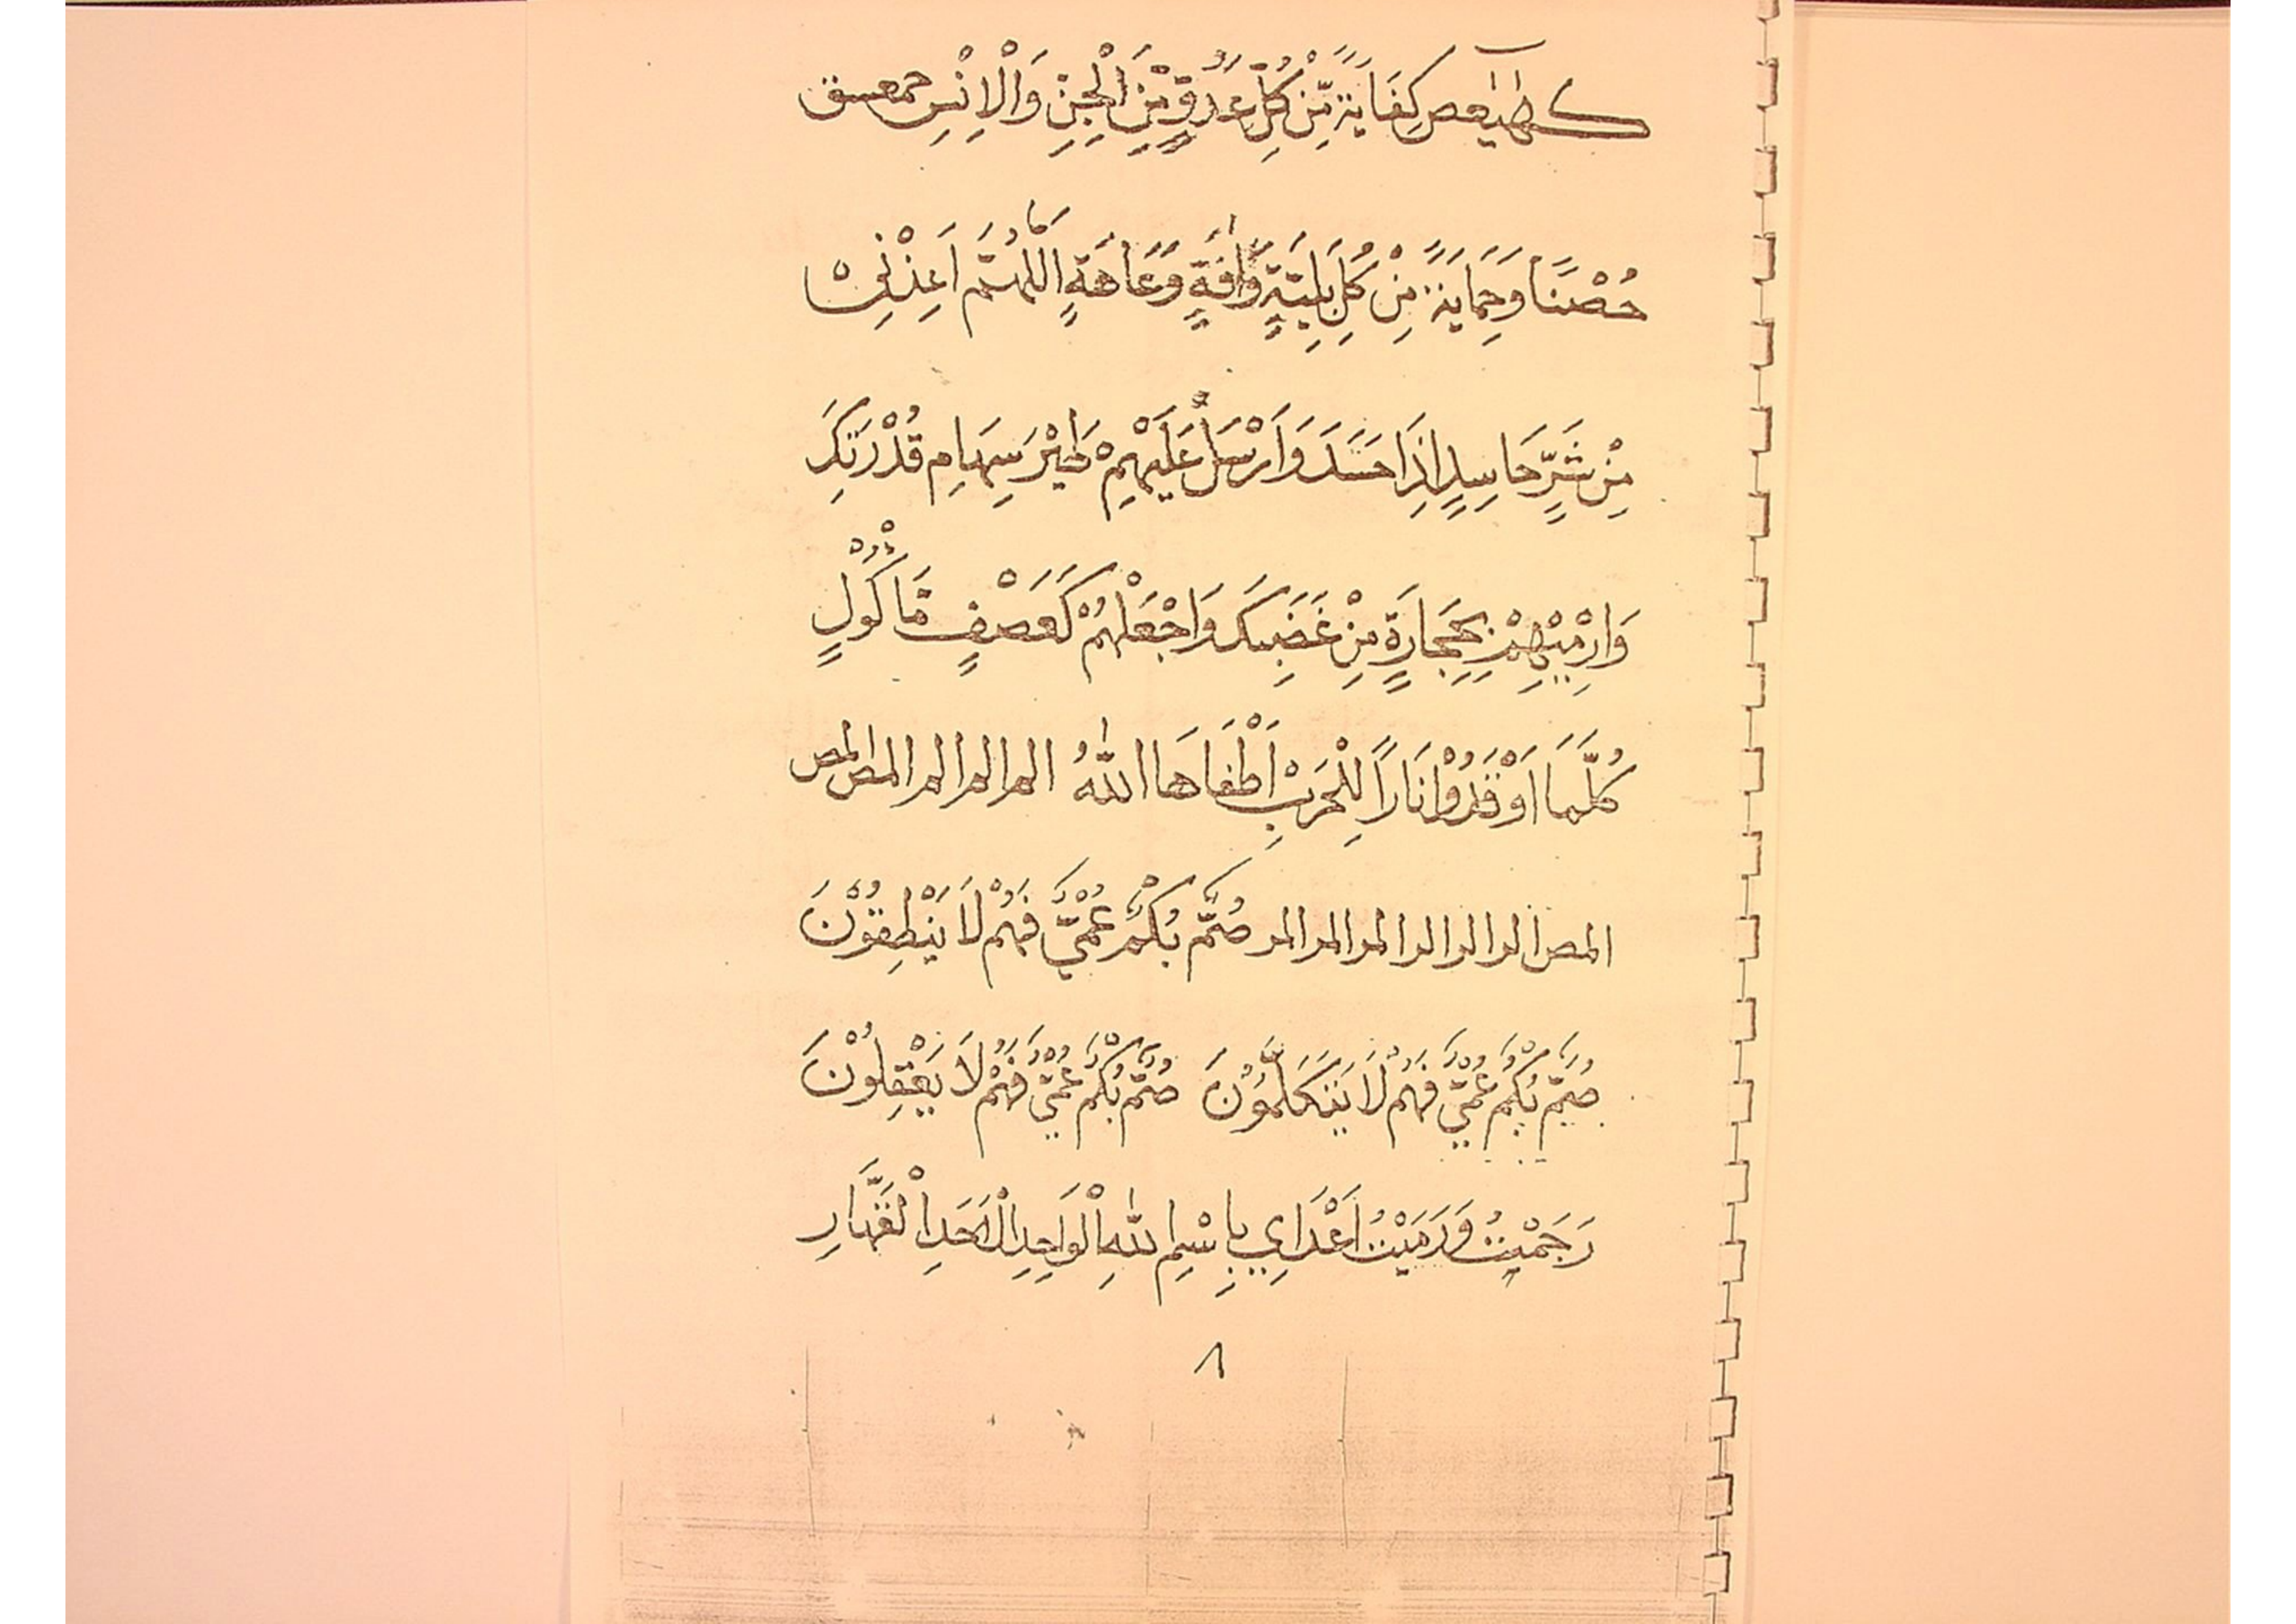 كٓهٰيٰعص كِفَايَةً مِّنْ كُلِّ عَدُوٍّ مِّنَ الْجِنِّ وَالْاِنْسِ حمعسق
حُصْنًا وَحِمَايَةً مِنْ كُلِّ بَلِيَّةٍ وَّاٰفَةٍ وَعَاهَةٍ اَللّٰهُمَّ اَعِذْنِىْ
مِنْ شَرِّ حَاسِدٍ اِذَا حَسَدَ وَاَرْسَلْ عَلَيْهِمْ طَيْرَ سِهَامِ قُدْرَتِكَ
وَارْمِيْهِمْ بِحِجَارَةٍ مِنْ غَضَبِكَ وَاجْعَلْهُمْ كَعَصْفٍ مَّاْكُوْلٍ
كُلَّمَا اَوْقَدُوْا نَارًا لِلْحَرْبِ اَطْفَاَهَا اللّٰهُ الم الم الم الم المص المص
المص الر الر الر المر المر المر صُمٌّ بُكْمٌ عُمْيٌ فَهُمْ لَا يَنْطِقُوْنَ
صُمٌّ بُكْمٌ عُمْيٌ فَهُمْ لَا يَتَكَلَّمُوْنَ صُمٌّ بُكْمٌ عُمْيٌ فَهُمْ لَا يَعْقِلُوْنَ
رَجَمْيتُ وَرَمَيْتُ اَعْدَايِ بِاِسْمِ اللّٰهِ الْوَاحِدِ الْاَحَدِ الْقَهَّارِ
٨